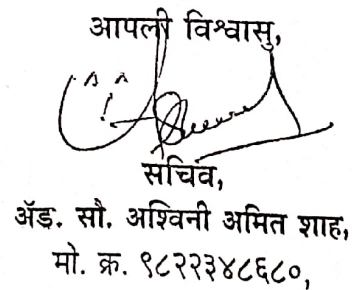 आपली विश्वासु,
सचिव,
ॲड. सौ. अश्विनी अमित शाह,
मो. क्र. ९८२२३४८६८०,